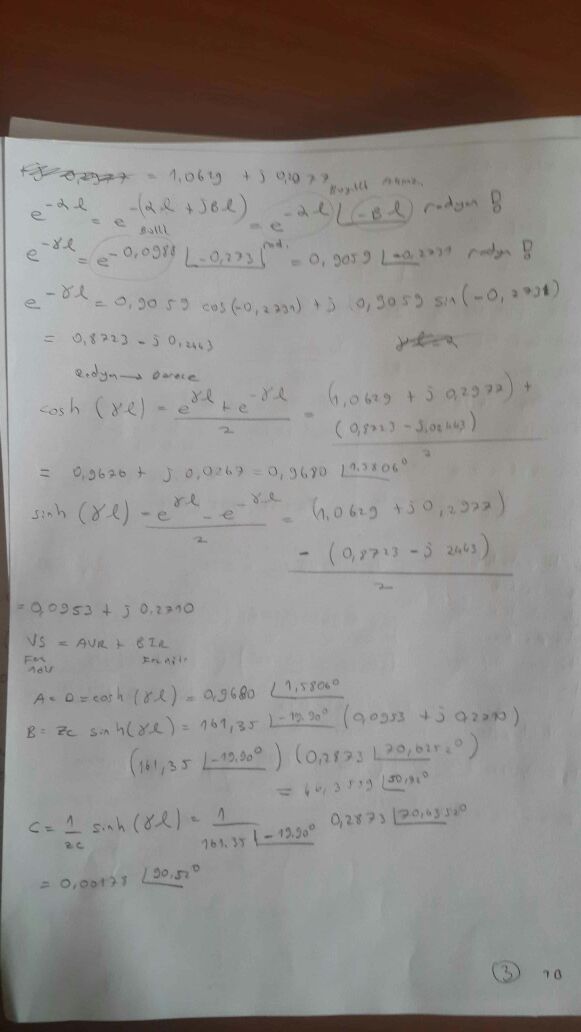 = 1,0629 + j 0,2977
e^-γl = e^-(αl + jBl) = e^-αl ∠-Bl radyan !
e^-γl = e^-0,0988 ∠-0,273 rad. = 0,9059 ∠-0,2731 radyn !
e^-γl = 0,9059 cos(-0,2731) + j 0,9059 sin(-0,2731)
= 0,8723 - j 0,2443
Radyn → Derece
cosh (γl) = e^γl + e^-γl / 2 = (1,0629 + j 0,2977) + (0,8723 - j,02443) / 2
= 0,9676 + j 0,0267 = 0,9680 ∠1,5806°
sinh (γl) = e^γl - e^-γl / 2 = (1,0629 + j 0,2977)
- (0,8723 - j 2443) / 2
= 0,0953 + j 0,2710
VS = AVR + BIR
A = D = cosh (γl) = 0,9680 ∠1,5806°
B = Zc sinh(γl) = 161,35 ∠-19.90° (0,0953 + j 0,2710)
(161,35 ∠-19.90°) (0,2873 ∠70,6252°)
= 46,3559 ∠50,92°
C = 1/Zc sinh (γl) = 1 / 161.35 ∠-19.90° 0,2873 ∠70,6352°
= 0,00178 ∠90.52°
3